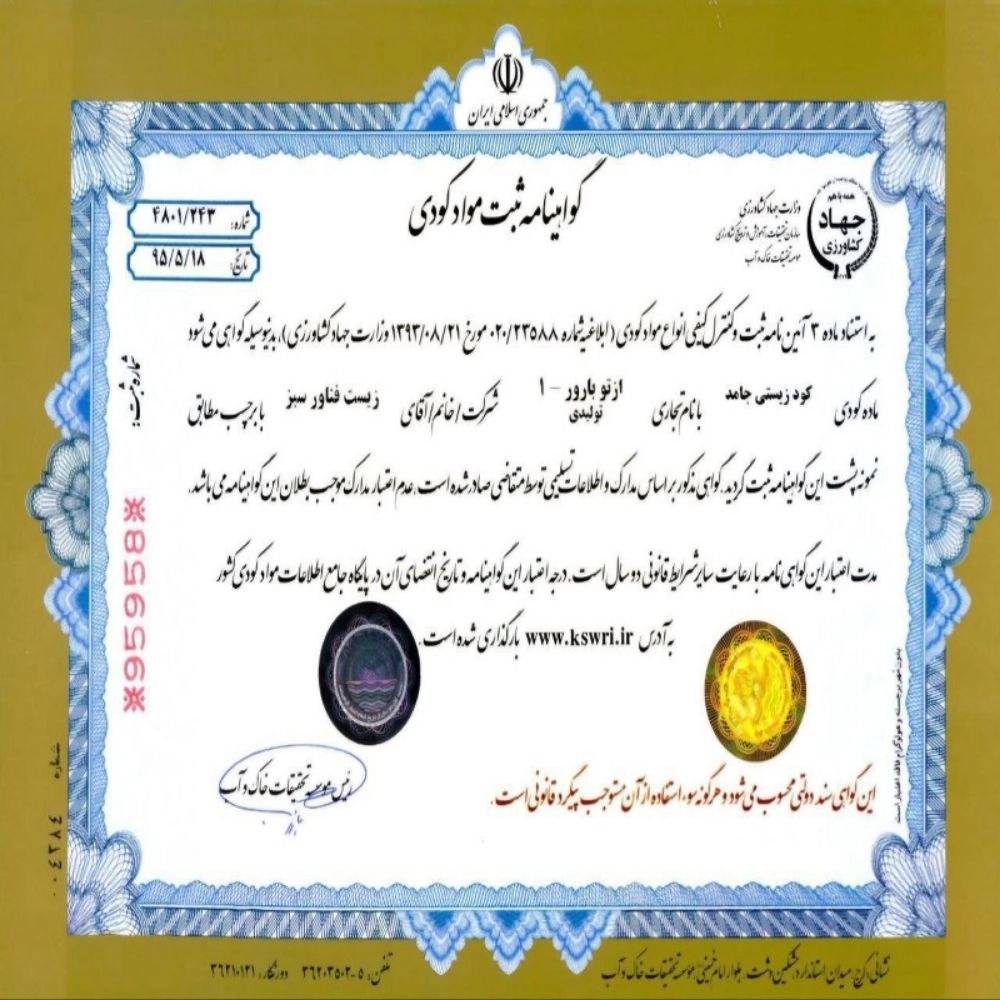 جمهوری اسلامی ایران
همه با هم
جهاد
کشاورزی
وزارت جهاد کشاورزی
سازمان تحقیقات، آموزش و ترویج کشاورزی
موسسه تحقیقات خاک و آب
گواهینامه ثبت مواد کودی
شماره: ۴۸۰۱/۲۴۳
تاریخ: ۹۵/۵/۱۸
به استناد ماده ۳ آئین نامه ثبت و کنترل کیفی انواع مواد کودی (ابلاغیه شماره ۰۲۰/۲۳۵۸۸ مورخ ۱۳۹۳/۰۸/۲۱ وزارت جهاد کشاورزی)، بدینوسیله گواهی می شود
ماده کودی کود زیستی جامد با نام تجاری ازتو بارور – ۱ تولیدی شرکت / خانم / آقای زیست فناور سبز با برچسب مطابق
نمونه پشت این گواهینامه ثبت گردید. گواهی مذکور بر اساس مدارک و اطلاعات تسلیمی توسط متقاضی صادر شده است، عدم اعتبار مدارک موجب بطلان این گواهینامه می باشد.
مدت اعتبار این گواهی نامه با رعایت سایر شرایط قانونی دو سال است. درجه اعتبار این گواهینامه و تاریخ انقضای آن در پایگاه جامع اطلاعات مواد کودی کشور
به آدرس www.kswri.ir بارگذاری شده است.
رئیس موسسه تحقیقات خاک و آب
این گواهی سند دولتی محسوب می شود و هرگونه سوء استفاده از آن مستوجب پیگرد قانونی است.
بدون مهر برجسته و هولوگرام فاقد اعتبار است
شماره ثبت:
※95958※
شماره ۰۰۴۳۸۴
نشانی: کرج، میدان استاندارد، مشکین دشت، بلوار امام خمینی، موسسه تحقیقات خاک و آب
تلفن: ۵-۳۶۲۰۳۵۰۲ دورنگار: ۳۶۲۱۰۱۲۱